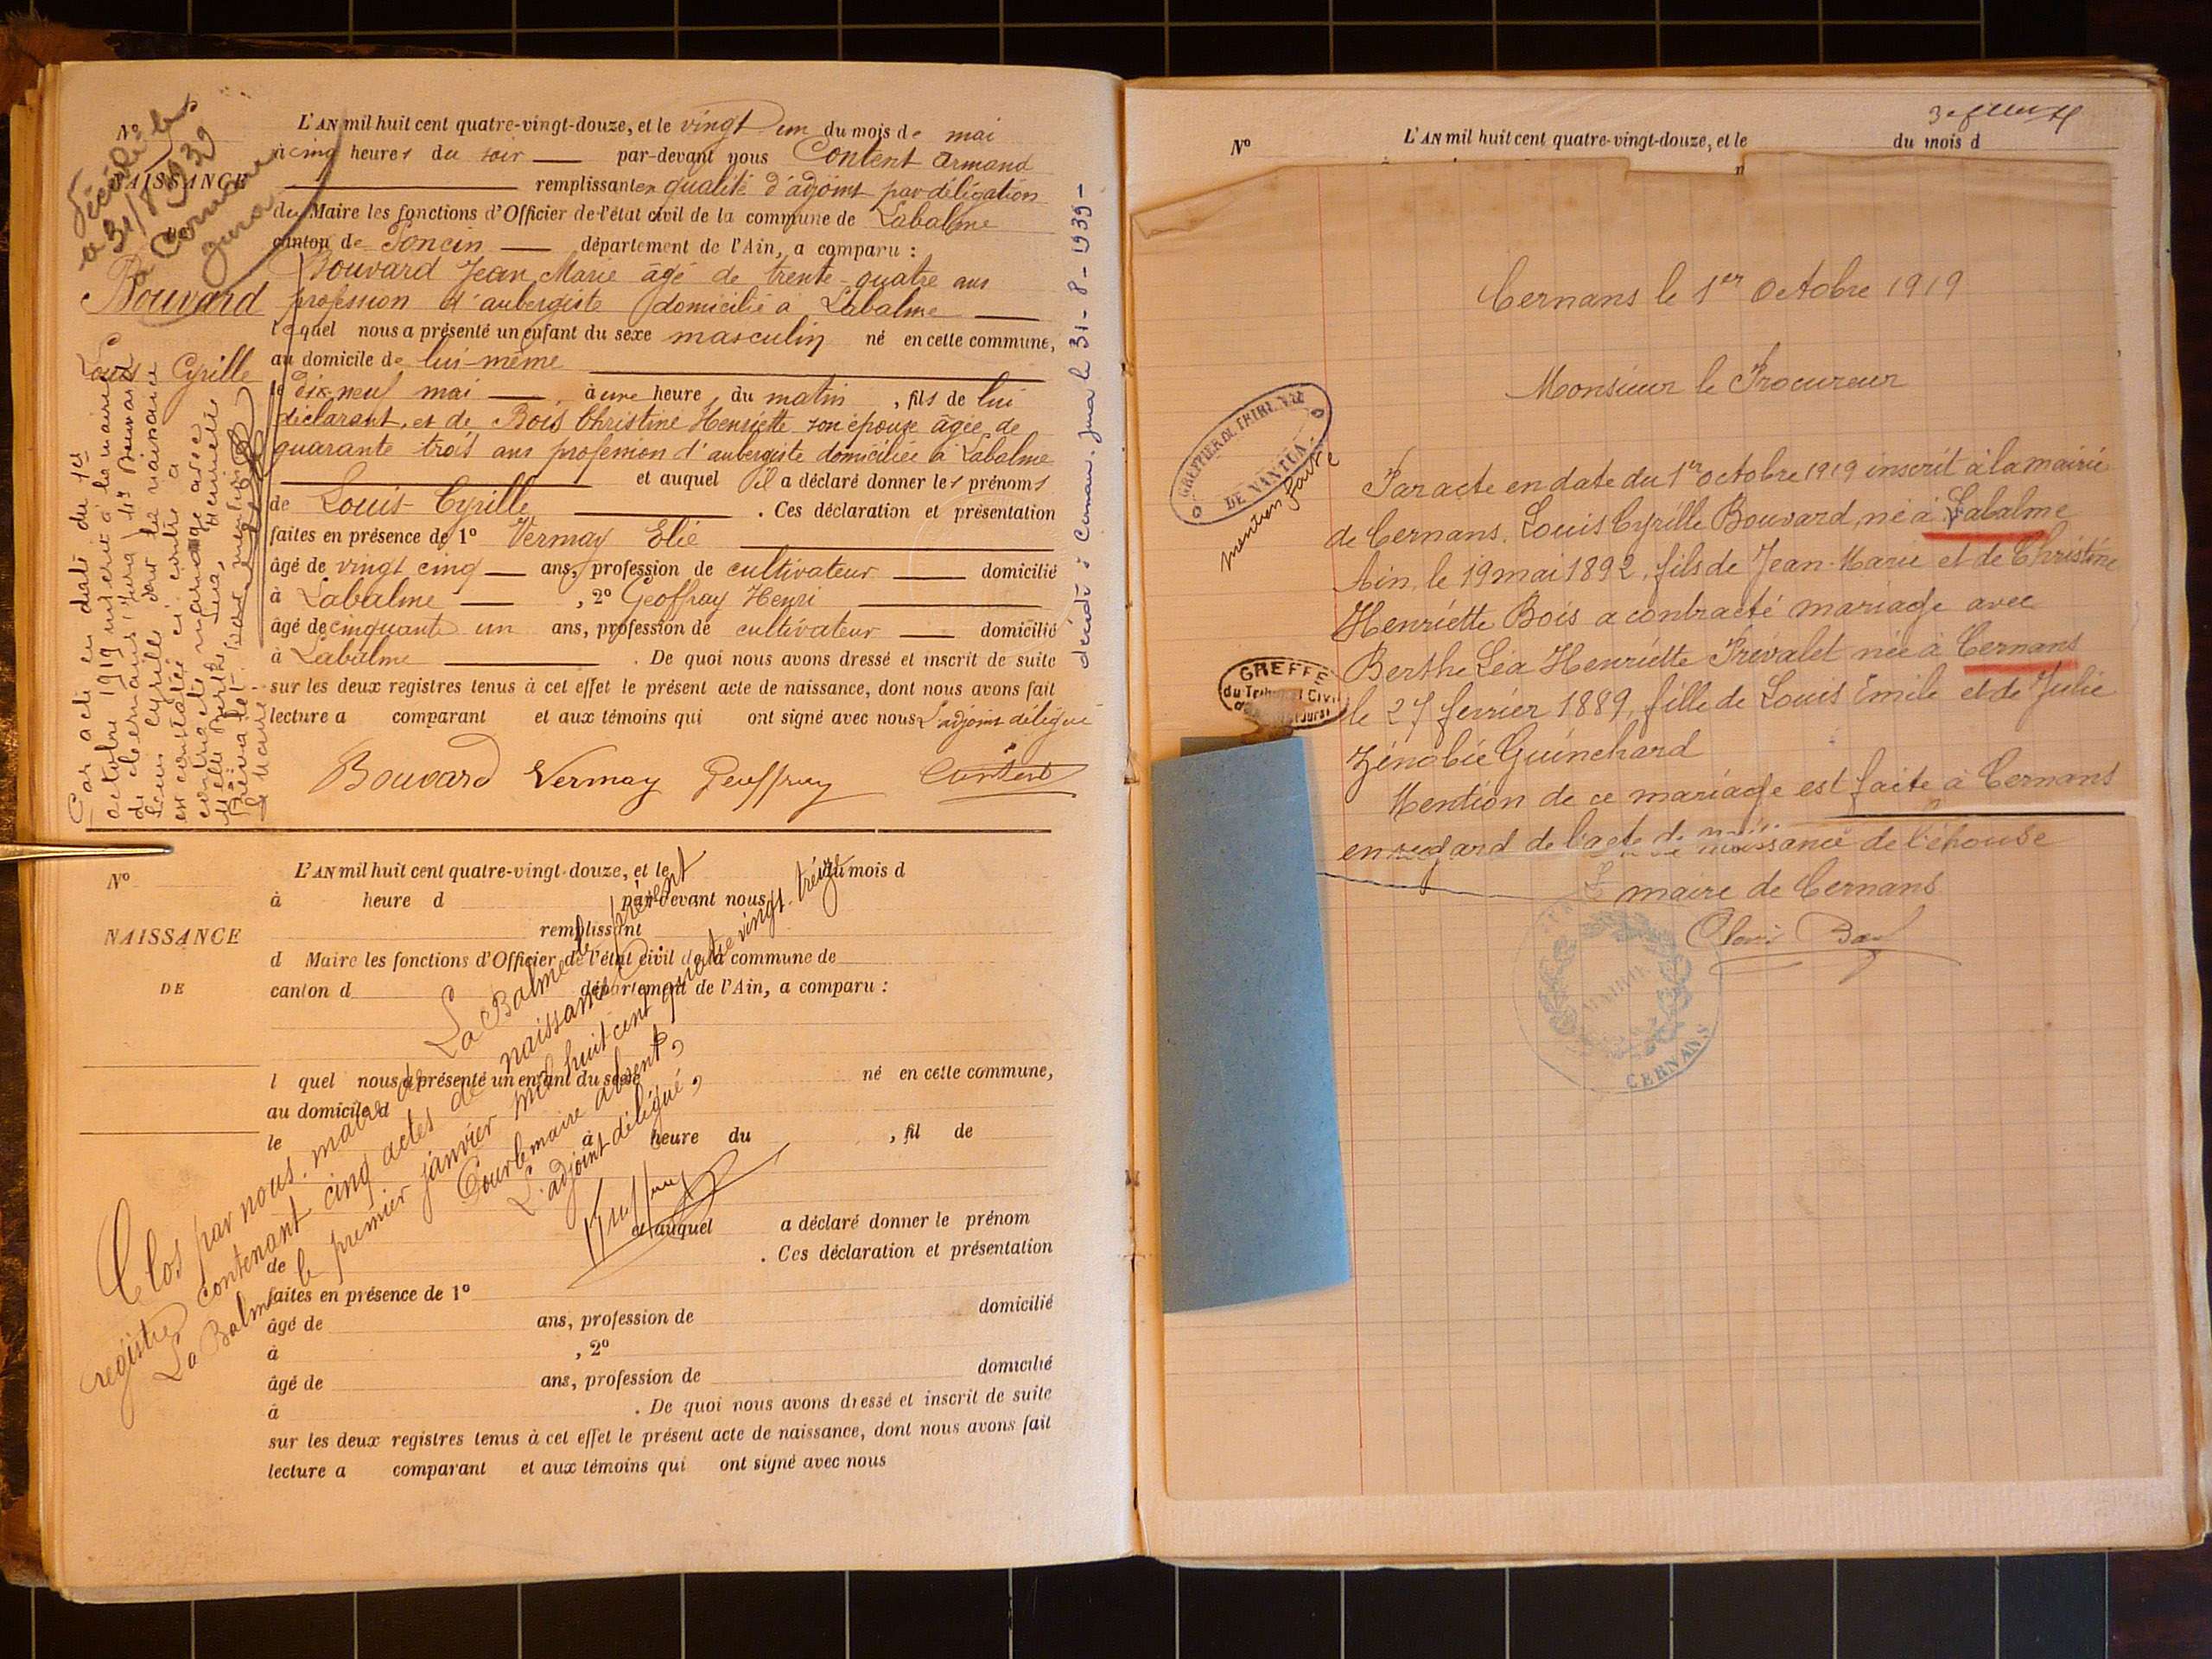 Nº
NAISSANCE
Décédé le
a 31/8 1939
Bouvard
Louis Cyrille
L'AN mil huit cent quatre-vingt-douze, et le vingt un du mois de mai
à cinq heures du soir par-devant nous Content Armand
remplissant en qualité d'adjoint par délégation
du Maire les fonctions d'Officier de l'état civil de la commune de Labalme
canton de Poncin département de l'Ain, a comparu :
Bouvard Jean Marie âgé de trente-quatre ans
profession d'aubergiste domicilié à Labalme
lequel nous a présenté un enfant du sexe masculin né en cette commune,
au domicile de lui-même
le dix neuf mai à une heure du matin, fils de lui
déclarant, et de Bois Christine Henriette son épouse âgée de
quarante trois ans profession d'aubergiste domiciliée à Labalme
et auquel il a déclaré donner les prénoms
de Louis-Cyrille. Ces déclaration et présentation
faites en présence de 1º Vermay Elie
âgé de vingt cinq ans, profession de cultivateur domicilié
à Labalme, 2º Geoffray Henri
âgé de cinquante un ans, profession de cultivateur domicilié
à Labalme. De quoi nous avons dressé et inscrit de suite
sur les deux registres tenus à cet effet le présent acte de naissance, dont nous avons fait
lecture a comparant et aux témoins qui ont signé avec nous L'adjoint délégué
Bouvard Vermay Geoffray Content
Par acte en date du 1er
octobre 1919 inscrit à la mairie
de Cernans (Jura) Mr Bouvard
Louis Cyrille dont la naissance
est constatée ci contre a
contracté mariage avec
Melle Berthe Léa Henriette
Prévalet.
Le Maire
décédé à Cernans. Jura le 31-8-1939-
Nº
NAISSANCE
DE
L'AN mil huit cent quatre-vingt-douze, et le du mois d
à heure d par-devant nous
remplissant
d Maire les fonctions d'Officier de l'état civil de la commune de
canton d département de l'Ain, a comparu :
l quel nous a présenté un enfant du sexe né en cette commune,
au domicile d
le à heure du, fil de
et auquel a déclaré donner le prénom
de. Ces déclaration et présentation
faites en présence de 1º
âgé de ans, profession de domicilié
à, 2º
âgé de ans, profession de domicilié
à. De quoi nous avons dressé et inscrit de suite
sur les deux registres tenus à cet effet le présent acte de naissance, dont nous avons fait
lecture a comparant et aux témoins qui ont signé avec nous
Clos par nous, maire de La Balme le présent
registre contenant cinq actes de naissance
La Balme le premier janvier mil huit cent quatre vingt treize
Pour le maire absent,
L'adjoint délégué,
Nº L'AN mil huit cent quatre-vingt-douze, et le du mois d
Cernans le 1er Octobre 1919
Monsieur le Procureur
Par acte en date du 1er octobre 1919 inscrit à la mairie
de Cernans, Louis Cyrille Bouvard, né à Labalme
Ain, le 19 mai 1892, fils de Jean-Marie et de Christine
Henriette Bois a contracté mariage avec
Berthe Léa Henriette Prévalet née à Cernans
le 27 fevrier 1889, fille de Louis Emile et de Julie
Zénobie Guinchard
Mention de ce mariage est faite à Cernans
en regard de l'acte de naissance de l'épouse
maire de Cernans
GREFFIER DU TRIBUNAL
DE NANTUA
mention faite
GREFFE
du Tribunal Civil
MAIRIE
CERNANS